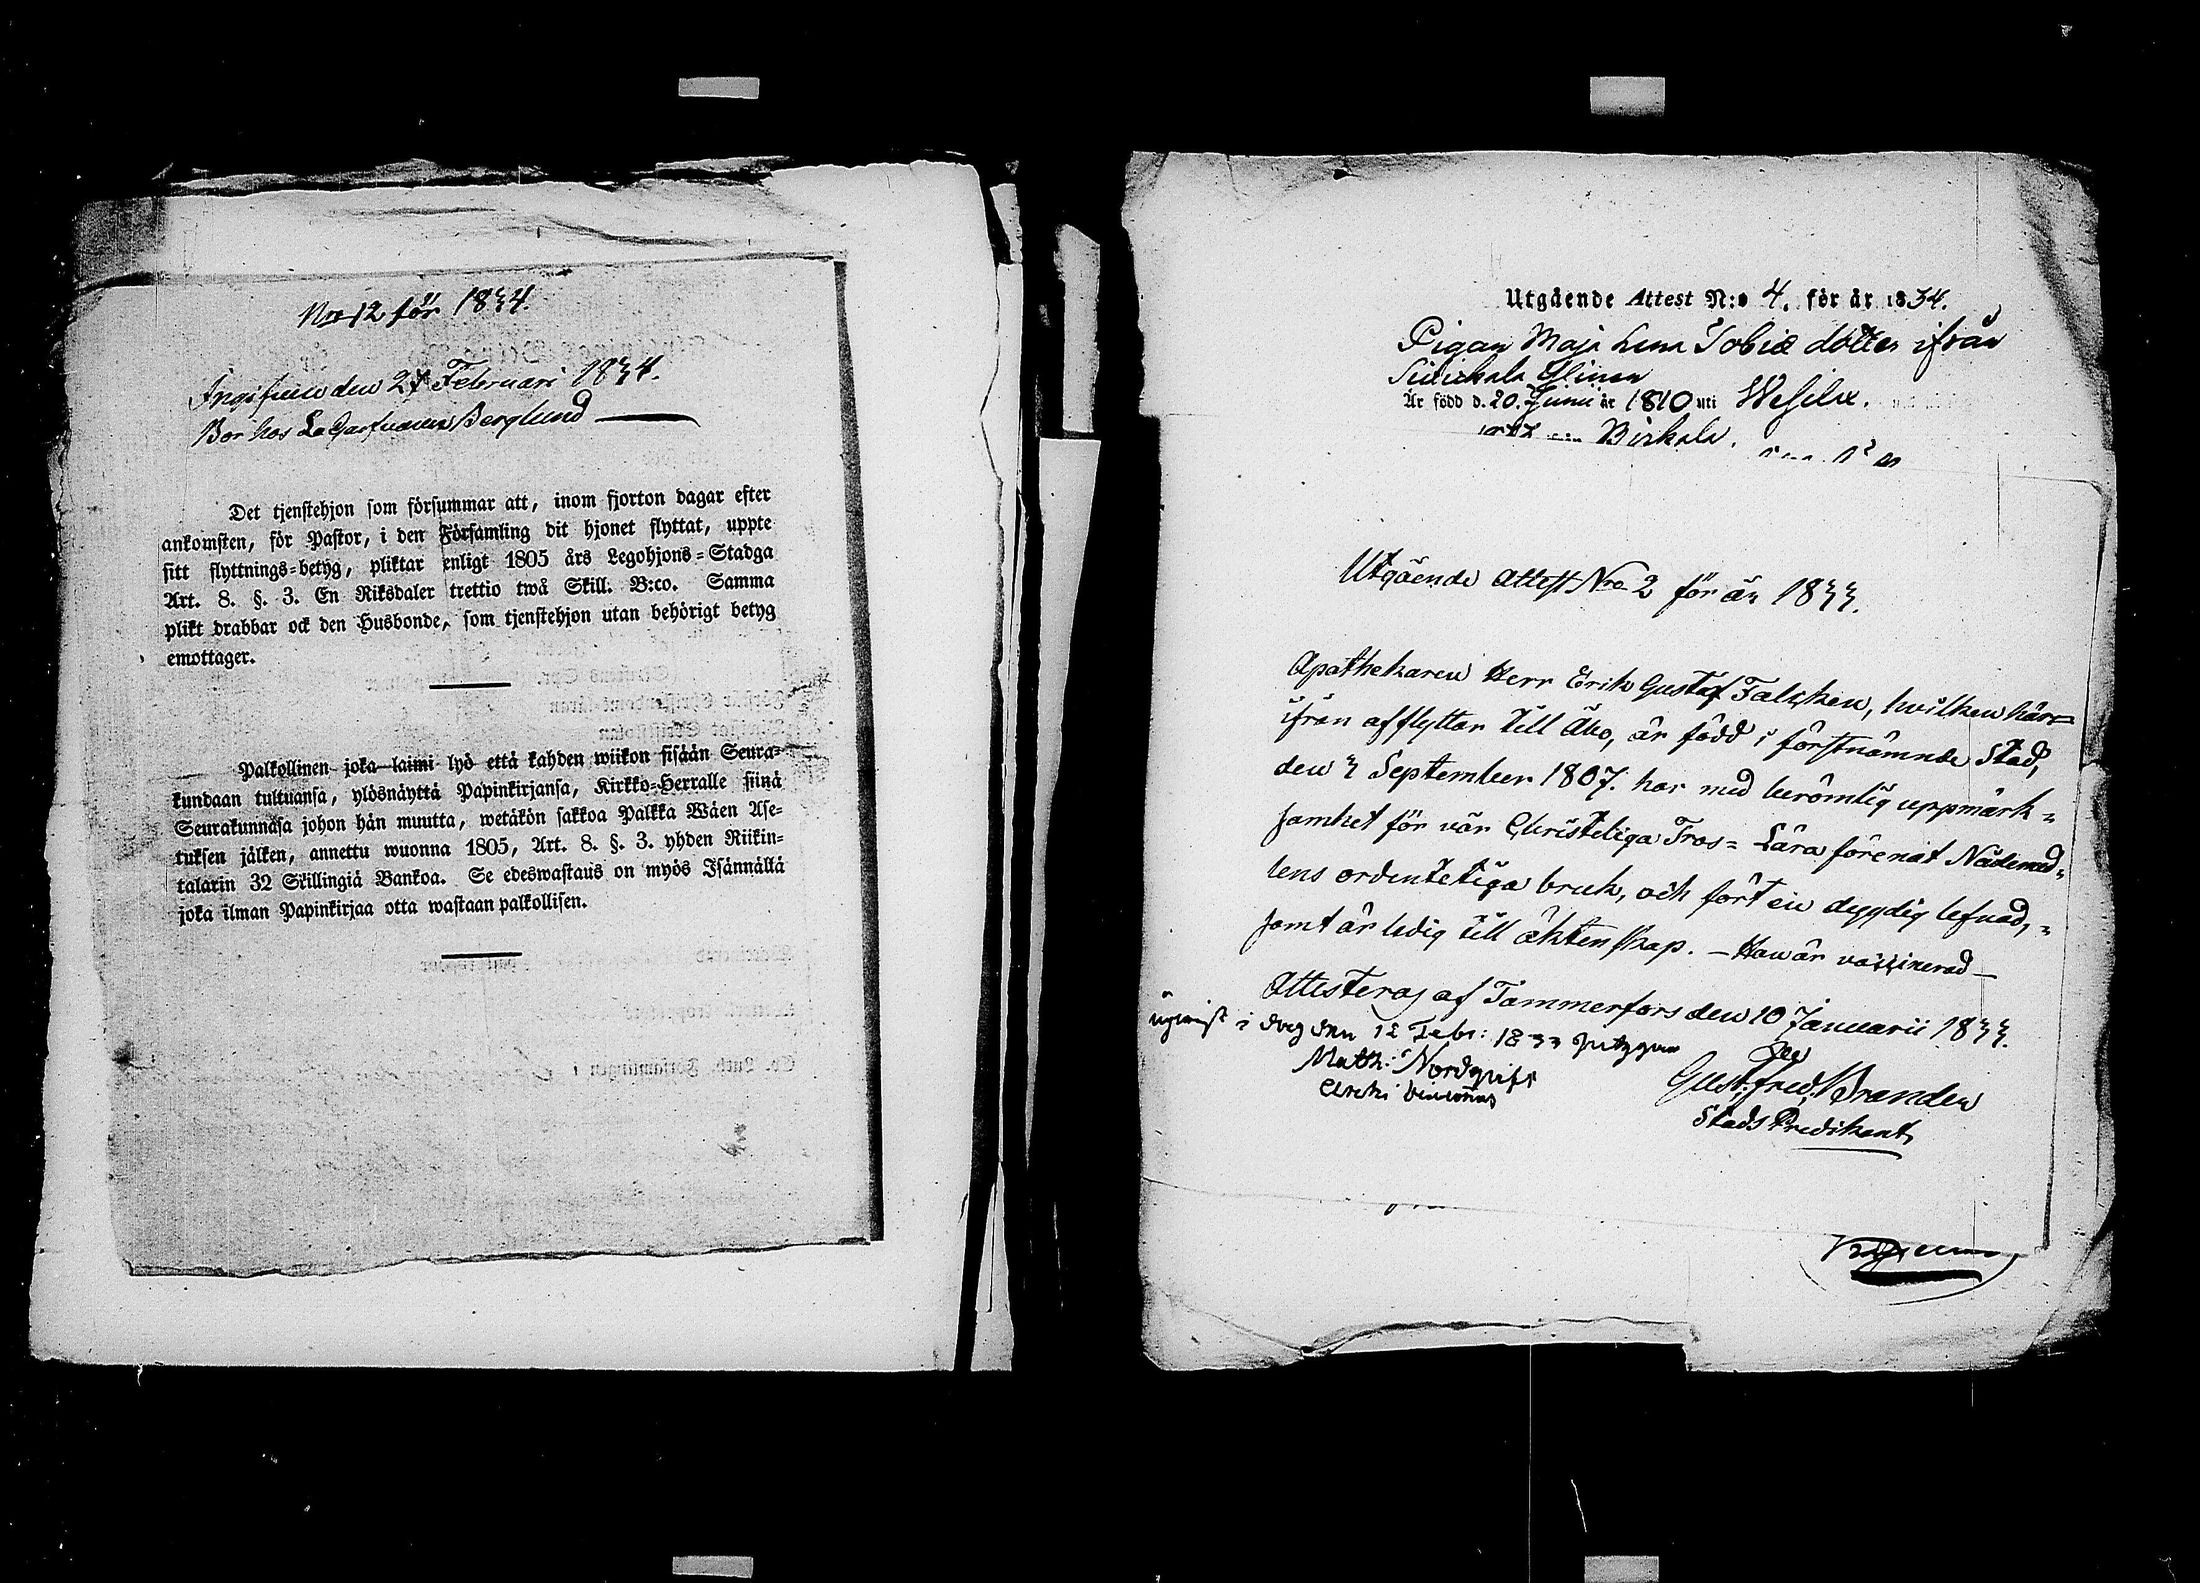 No 12 för 1834.
Ingifven den 27 Februari 1834.
Bor hos La Garfvaren Berglund
Det tjenstehjon som försummar att, inom fjorton dagar efter
ankomsten, för Pastor, i den Församling dit hjonet flyttat, uppte
sitt flyttnings-betyg, pliktar enligt 1805 års Legohjons-Stadga
Art. 8. §. 3. En Riksdaler trettio twå Skill. B:co. Samma
plikt drabbar ock den Husbonde, som tjenstehjon utan behörigt betyg
emottager.
Palkollinen joka laimi lyö että kahden wiikon sisään Seura-
kundaan tultuansa, ylösnäyttä Papinkirjansa, Kirkko-Herralle siinä
Seurakunnasa johon hän muutta, wetäkön sakkoa Palkka Wäen Ase-
tuksen jälken, annettu wuonna 1805, Art. 8. §. 3. yhden Riikin-
talarin 32 Skillingiä Bankoa. Se edeswastaus on myös Isännällä
joka ilman Papinkirjaa otta wastaan palkollisen.
Utgående Attest N:o 4. för år 1834.
Pigan Maja Lena Tobiæ dotter ifrån
Är född d. 20. Junii år 1810 uti Wesilax.
Birkala.
Utgående Attest Nro 2 för år 1833.
Apothekaren Herr Erik Gustaf Falchen, hvilken här=
ifrån afflyttar till Åbo, är född i förstnämnde Stad,
den 3 September 1807. har med berömlig uppmärk=
samhet för vår Christeliga Tros= Lära förenat Nådemed=
lens ordenteliga bruk, och fört en dygdig lefnad,=
samt är ledig till äktenskap. – Han är vaccinerad –
Attesteras af Tammerfors den 10 Januarii 1833.
i dag den 12 Febr: 1833
Math: Nordqvist
Gust. Fred. Brander
Stads Predikant,